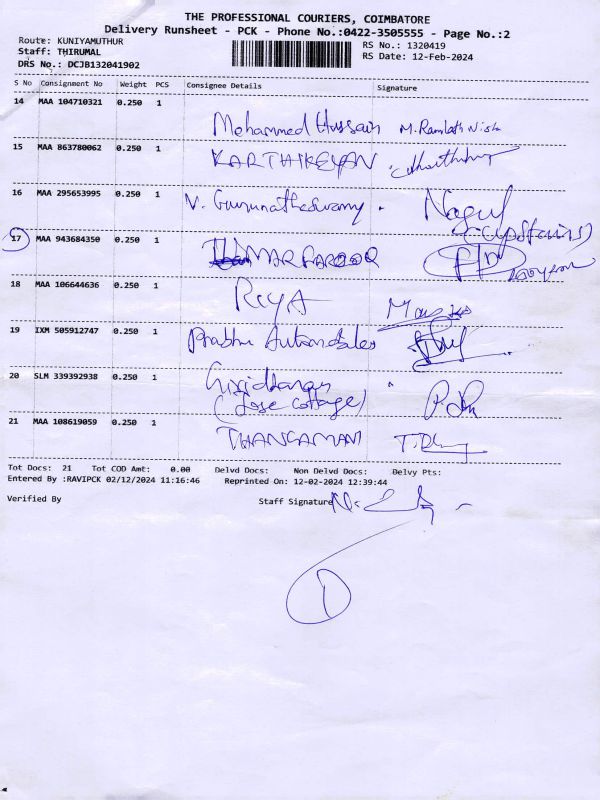 THE PROFESSIONAL COURIERS, COIMBATORE
Delivery Runsheet - PCK - Phone No.:0422-3505555 - Page No.:2
Route: KUNIYAMUTHUR
RS No.: 1320419
Staff: THIRUMAL
RS Date: 12-Feb-2024
DRS No.: DCJB132041902
S No Consignment No Weight PCS Consignee Details Signature
14 MAA 104710321 0.250 1
Mohammed Hussain
15 MAA 863780062 0.250 1
KARTHIKEYAN
16 MAA 295653995 0.250 1
V. Gurunathaswamy. Nagul
(upstairs)
17 MAA 943684350 0.250 1
UMAR FAROOQ
18 MAA 106644636 0.250 1
RIYA
19 IXM 505912747 0.250 1
Prabhu
20 SLM 339392938 0.250 1
(Jose cottage)
21 MAA 108619059 0.250 1
THANGAMANI
Tot Docs: 21 Tot COD Amt: 0.00 Delvd Docs: Non Delvd Docs: Delvy Pts:
Entered By :RAVIPCK 02/12/2024 11:16:46 Reprinted On: 12-02-2024 12:39:44
Verified By Staff Signature
1